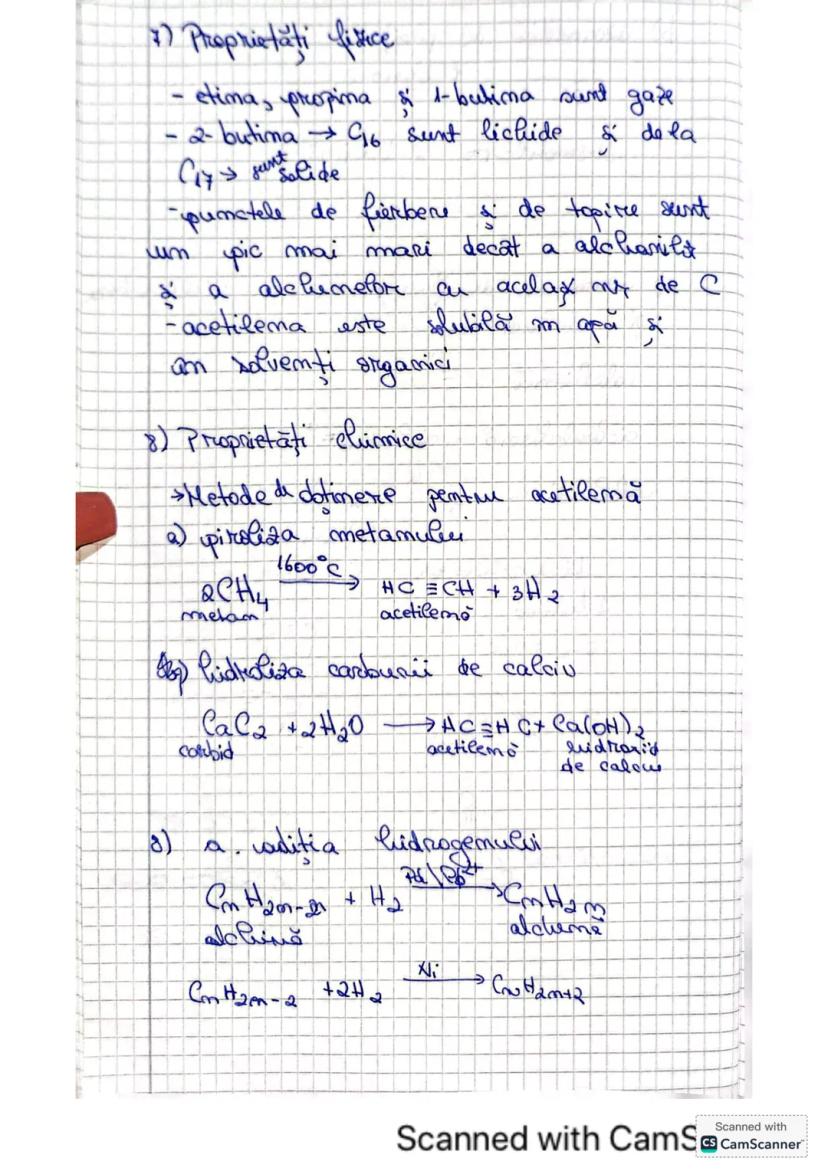 7) Proprietăți fizice
- etina, propina și 1-butina sunt gaze
- 2-butina → C16 sunt lichide și de la
C17 → sunt solide
- punctele de fierbere și de topire sunt
un pic mai mari decât a alchanilor
și a alchenelor cu același nr de C
- acetilena este solubilă în apă și
în solvenți organici
8) Proprietăți chimice
→ Metode de obținere pentru acetilenă
a) piroliza metanului
1600°C
2CH4 → HC ≡ CH + 3H2
metan acetilenă
b) hidroliza carburii de calciu
CaC2 + 2H2O → HC≡HC + Ca(OH)2
carbid acetilenă hidroxid
de calciu
8) a. adiția hidrogenului
Pd\Pb2+
CnH2n-2 + H2 → CnH2n
alchină alchenă
Ni
CnH2n-2 +2H2 → CnH2n+2
Scanned with CamS
Scanned with
CS CamScanner